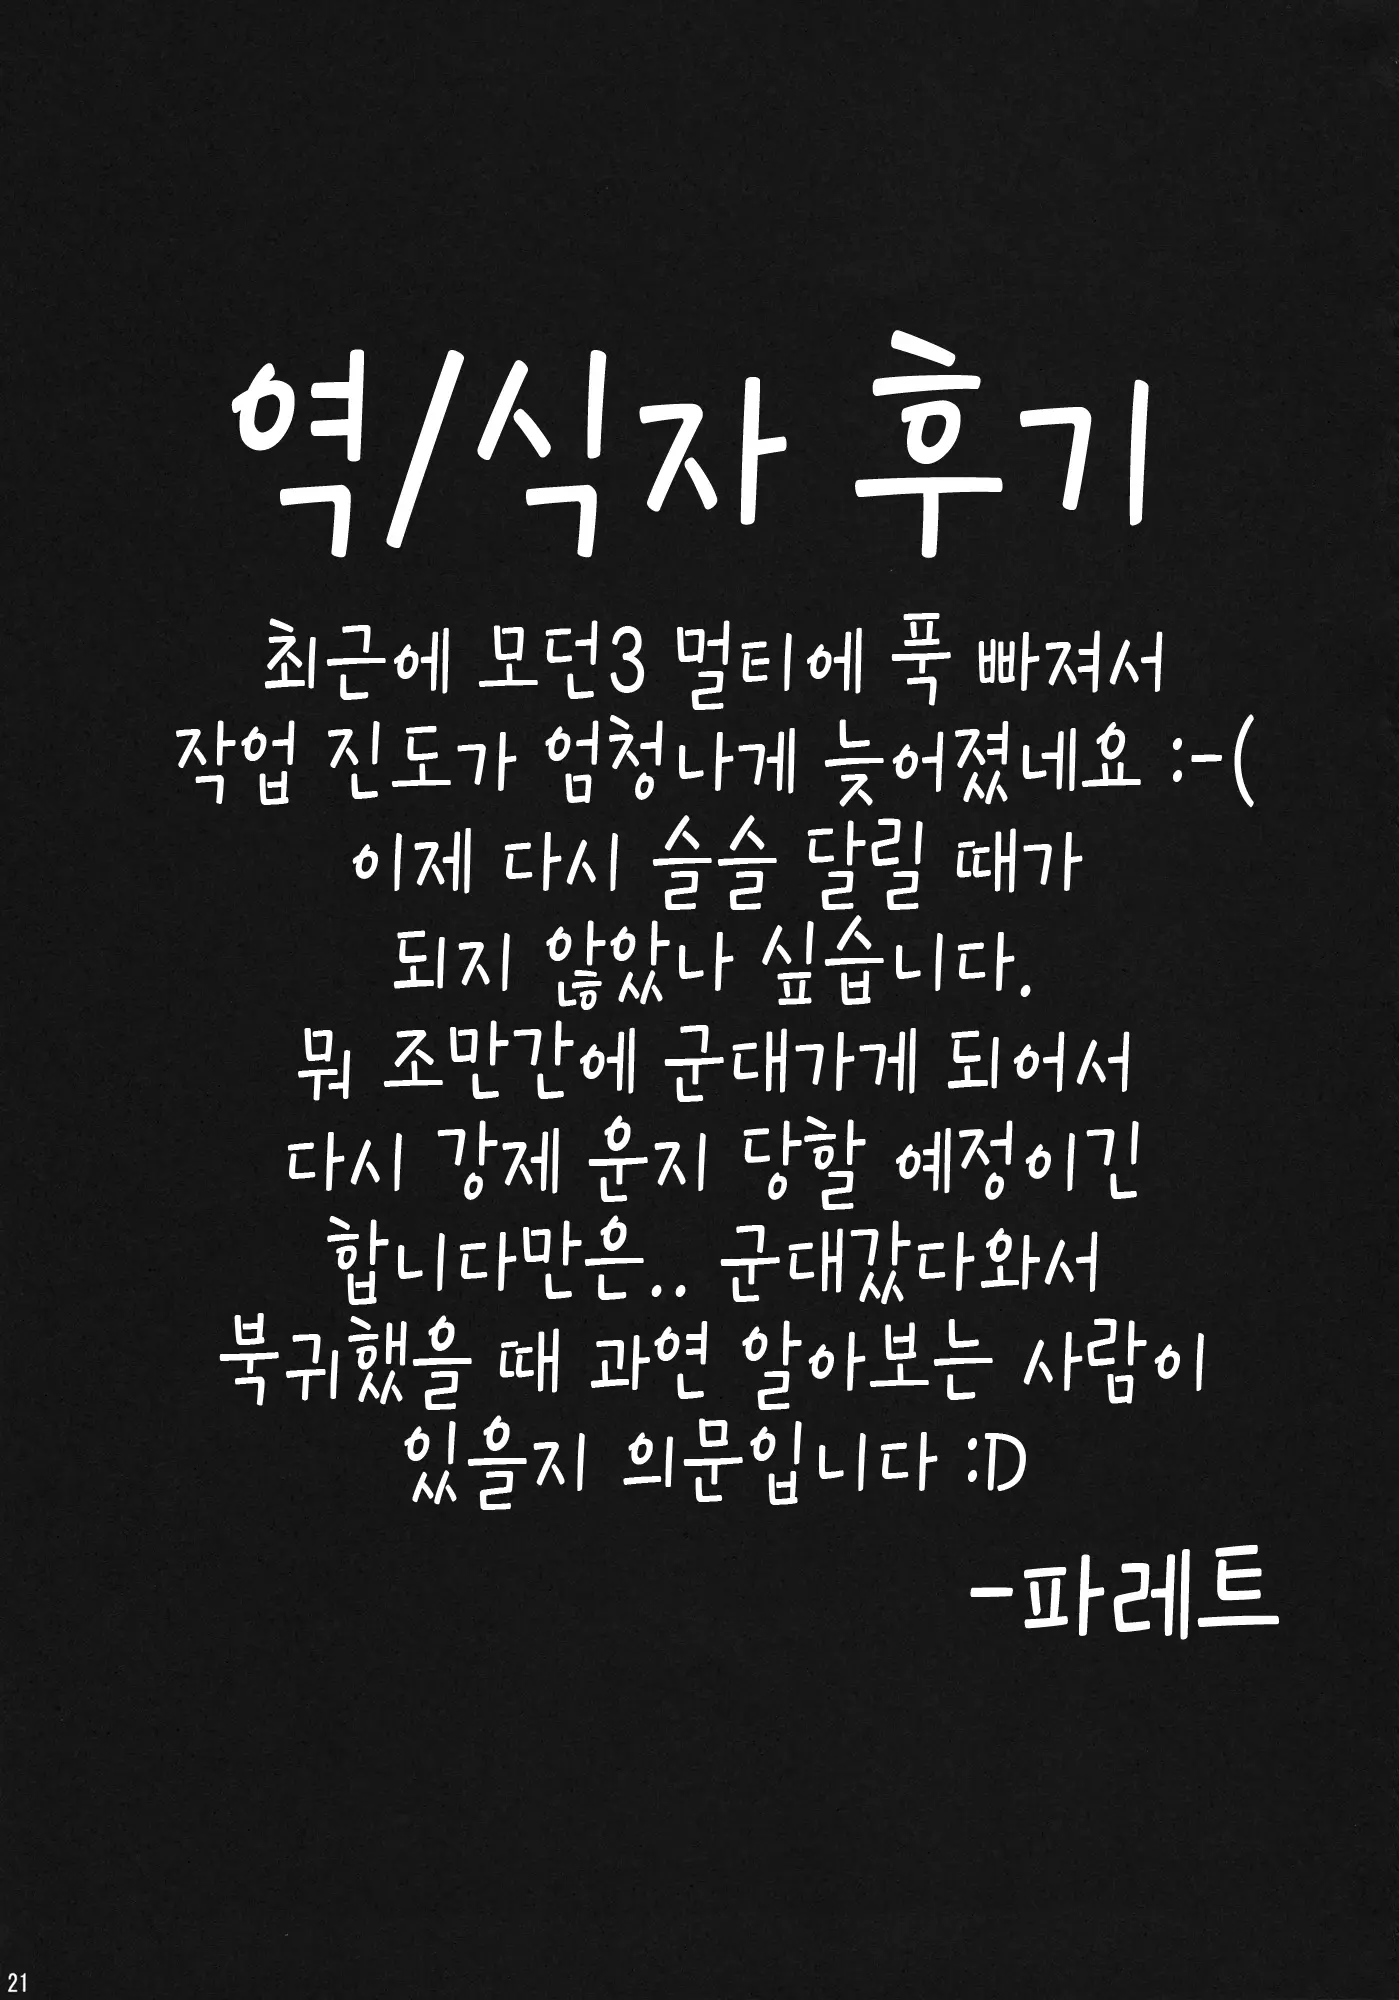 역/식자 후기
최근에 모던3 멀티에 푹 빠져서
작업 진도가 엄청나게 늦어졌네요 :-(
이제 다시 슬슬 달릴 때가
되지 않았나 싶습니다.
뭐 조만간에 군대가게 되어서
다시 강제 운지 당할 예정이긴
합니다만은.. 군대갔다와서
북귀했을 때 과연 알아보는 사람이
있을지 의문입니다 :D
-파레트
21